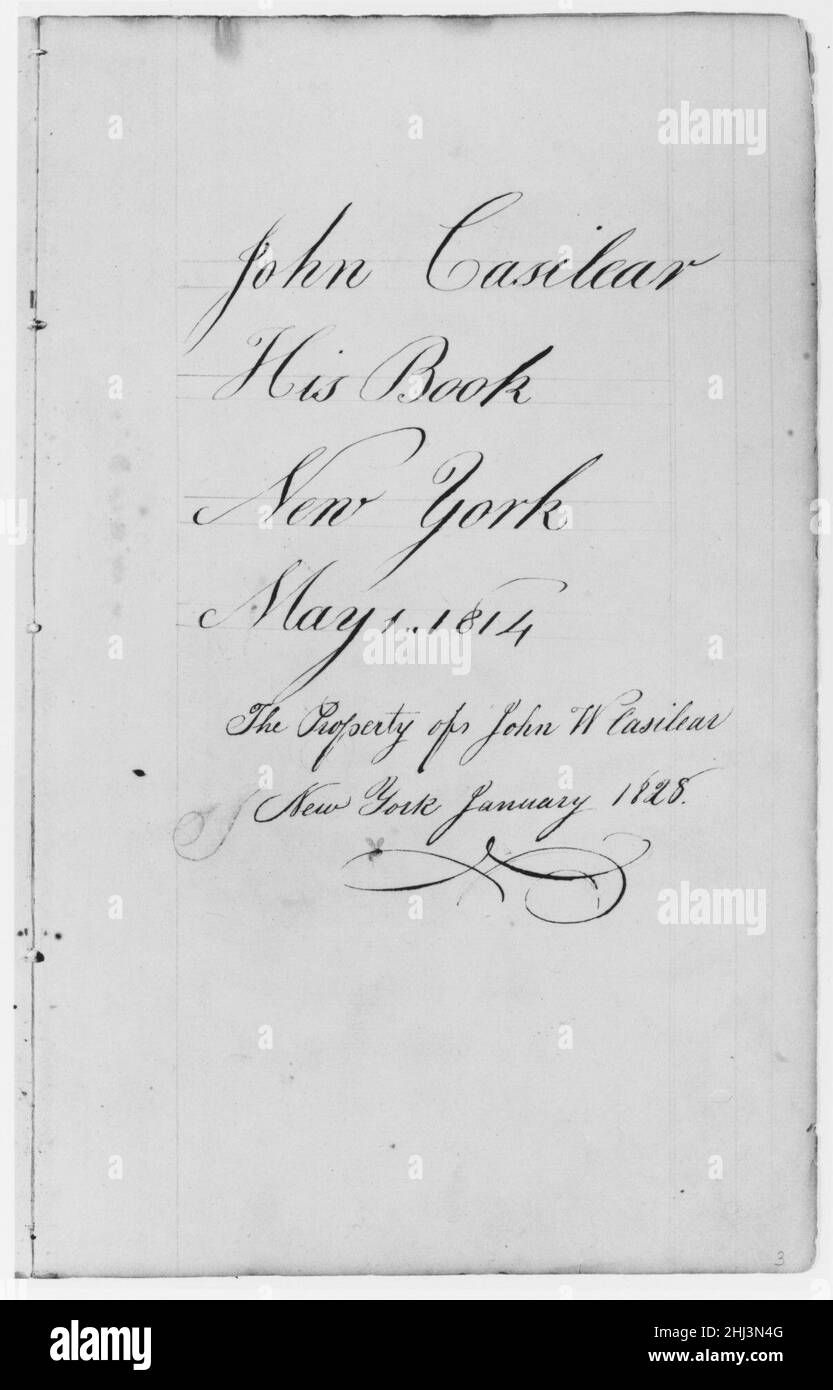 John Casilear
His Book
New York
May 1. 1814
The Property of John W Casilear
New York January 1828.
3
alamy
alamy
alamy
alamy
Image ID: 2HJ3N4G
www.alamy.com